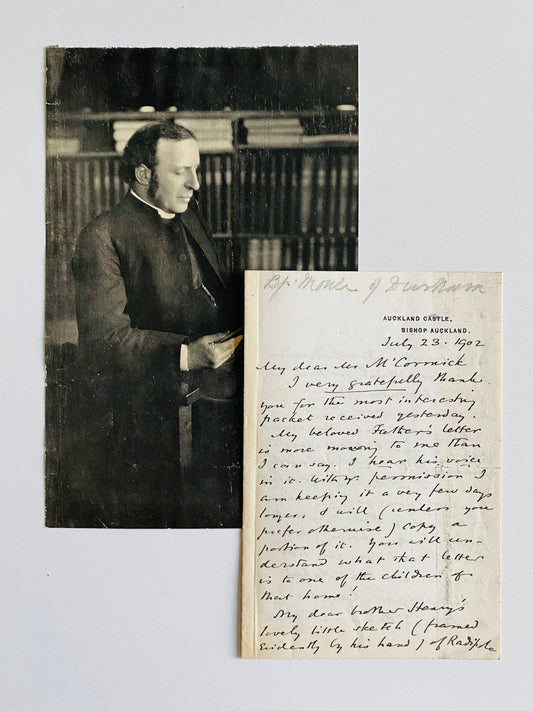 Bp. Moule of Durham
AUCKLAND CASTLE,
BISHOP AUCKLAND.
July 23. 1902
My dear Mr McCormick
I very gratefully thank
you for the most interesting
packet received yesterday.
My beloved Father's letter
is more moving to me than
I can say. I hear his voice
in it. With yr. permission I
am keeping it a very few days
longer; I will (unless you
prefer otherwise) copy a
portion of it. You will un-
derstand what that letter
is to one of the children of
that home!
My dear brother Henry's
lovely little sketch (framed
evidently by his hand) of Radipole